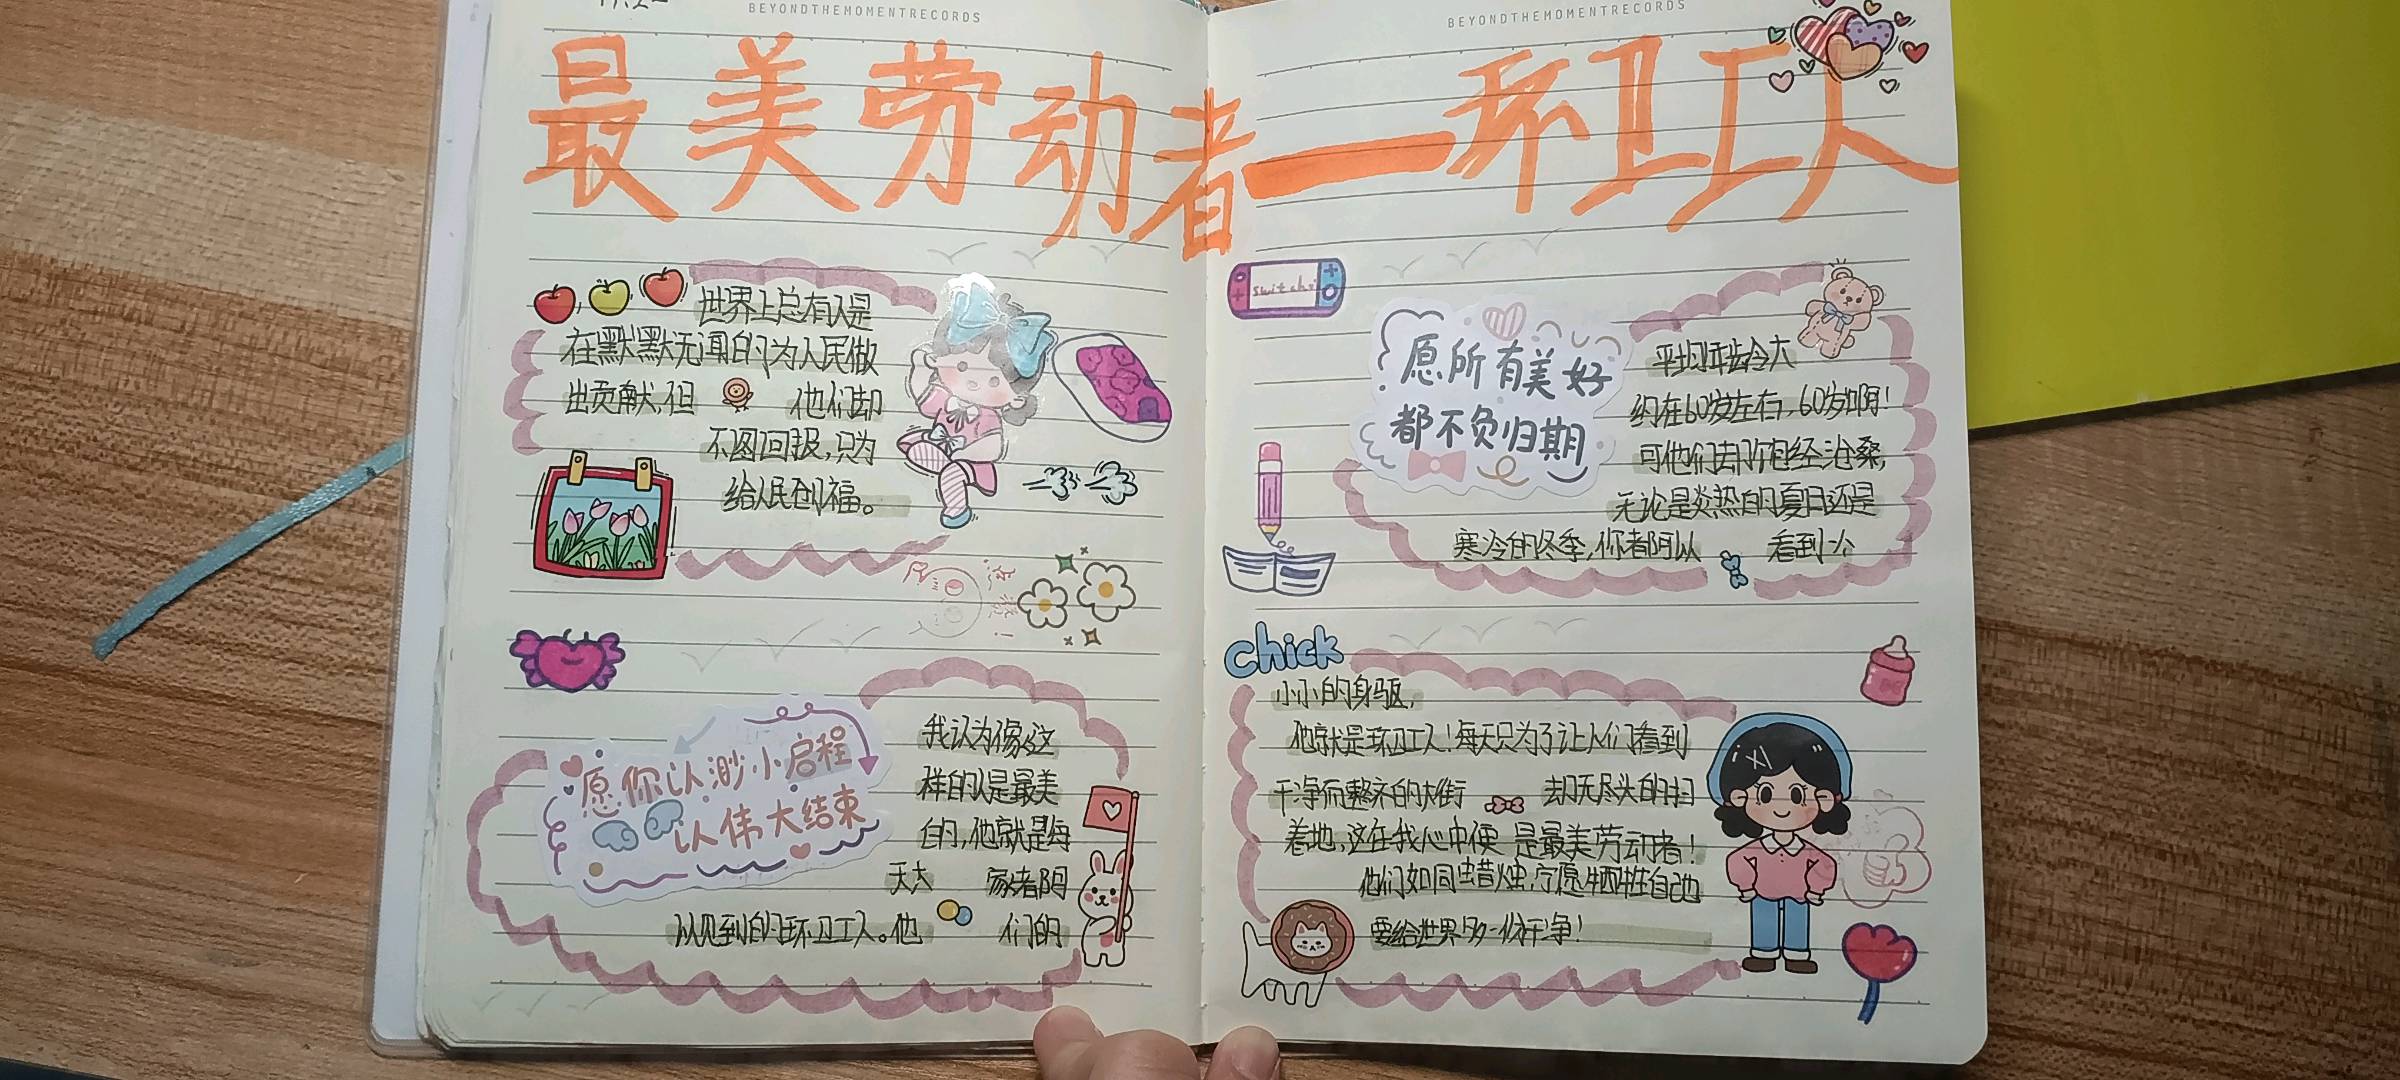 BEYONDTHEMOMENTRECORDS
BEYONDTHEMOMENTRECORDS
最美劳动者—环卫工人
世界上总有人是
在默默无闻的为人民做
出贡献,但 他们却
不图回报,只为
给人民创福。
愿你以渺小启程
以伟大结束
我认为像这
样的人是最美
的,他就是每
天大 家都可
以见到的环卫工人。他 们的
switch
愿所有美好
都不负归期
平均年龄大
约在60岁左右,60岁啊!
可他们却饱经沧桑,
无论是炎热的夏日还是
寒冷的冬季,你都可以 看到个
chick
小小的身躯,
他就是环卫工人!每天只为了让人们看到
干净而整齐的大街 却无尽头的扫
着地,这在我心中便 是最美劳动者!
他们如同蜡烛,宁愿牺牲自己
要给世界多一份干净!